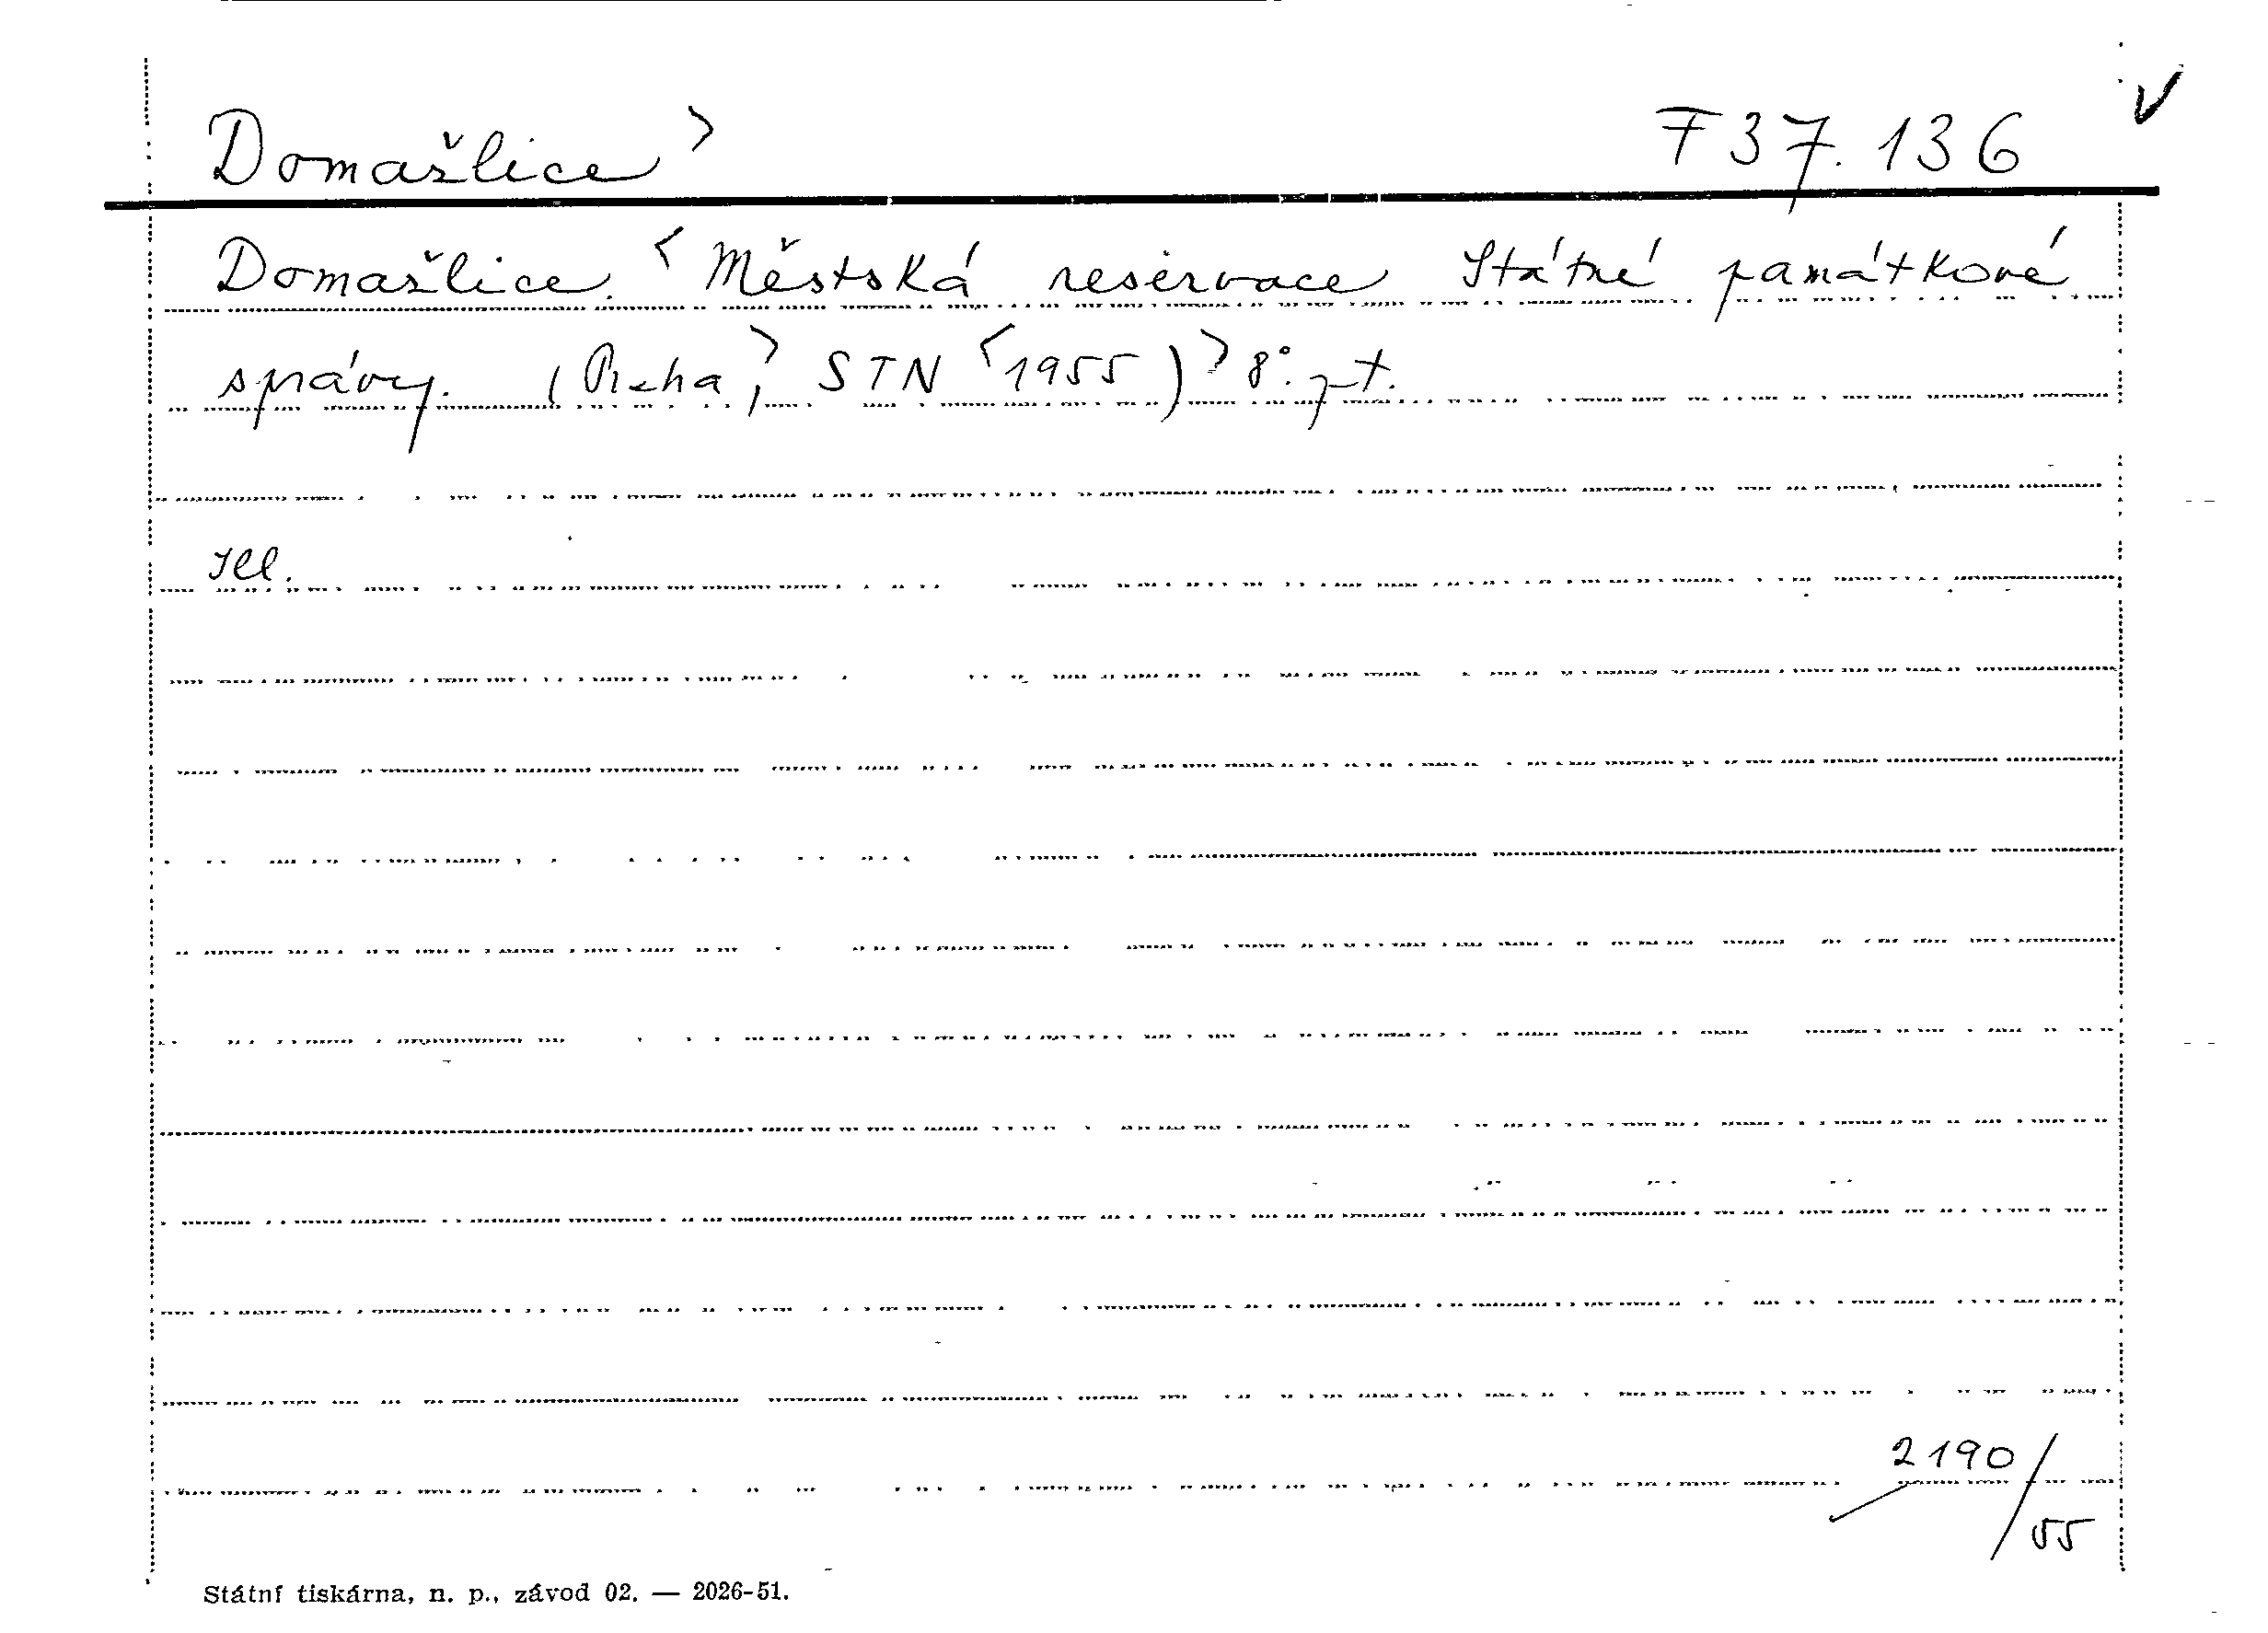 Domažlice > F 37.136 V
Domažlice. < Městská reservace Státné památkové
správy. (Praha,> STN <1955)> 8°.
Ill.
2190/55
Státní tiskárna, n. p., závod 02. — 2026-51.